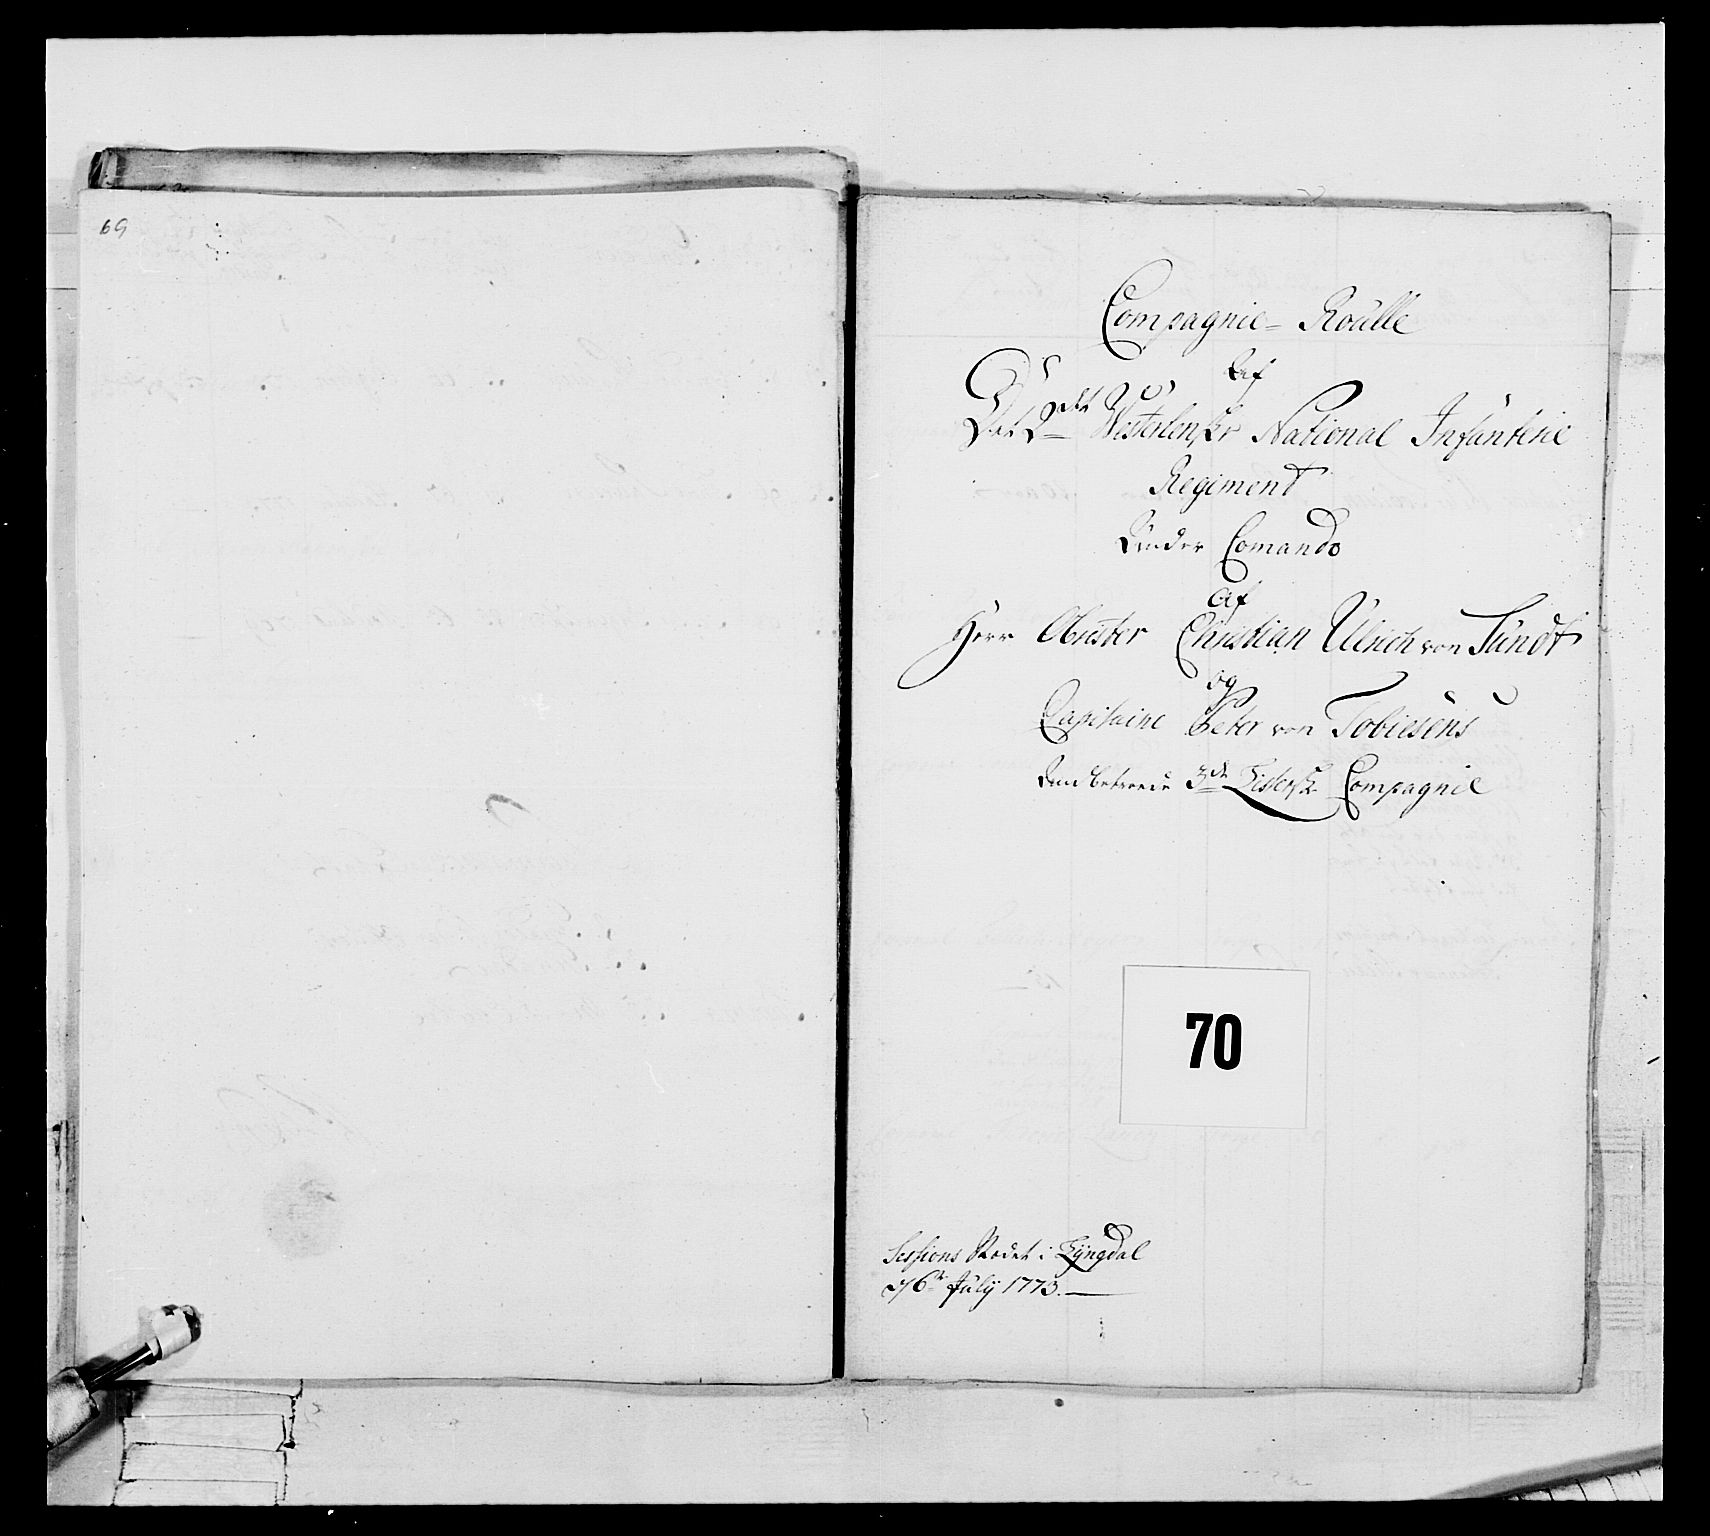 69
Compagnie- Roülle
Af
Det 2det Westerlenske National Infanterie
Regiment
Under Comando
Af
Herr Obrister Christian Ulrich von Sundt
og
Capitaine Peter von Tobiesens
3de Listerske Compagnie
70
Sessions Stædet i Lyngdal
d/6te July 1773.